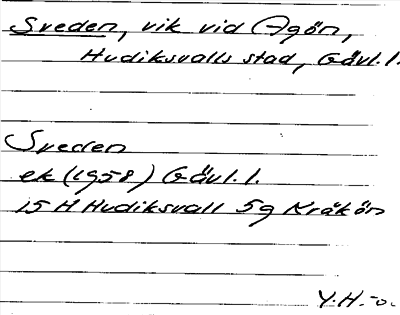 Sveden, vik vid Agön,
Hudiksvalls stad, Gävl. l.
Sveden
ek (1958) Gävl. l.
15 H Hudiksvall 5g Kråkön
Y. H.-o.